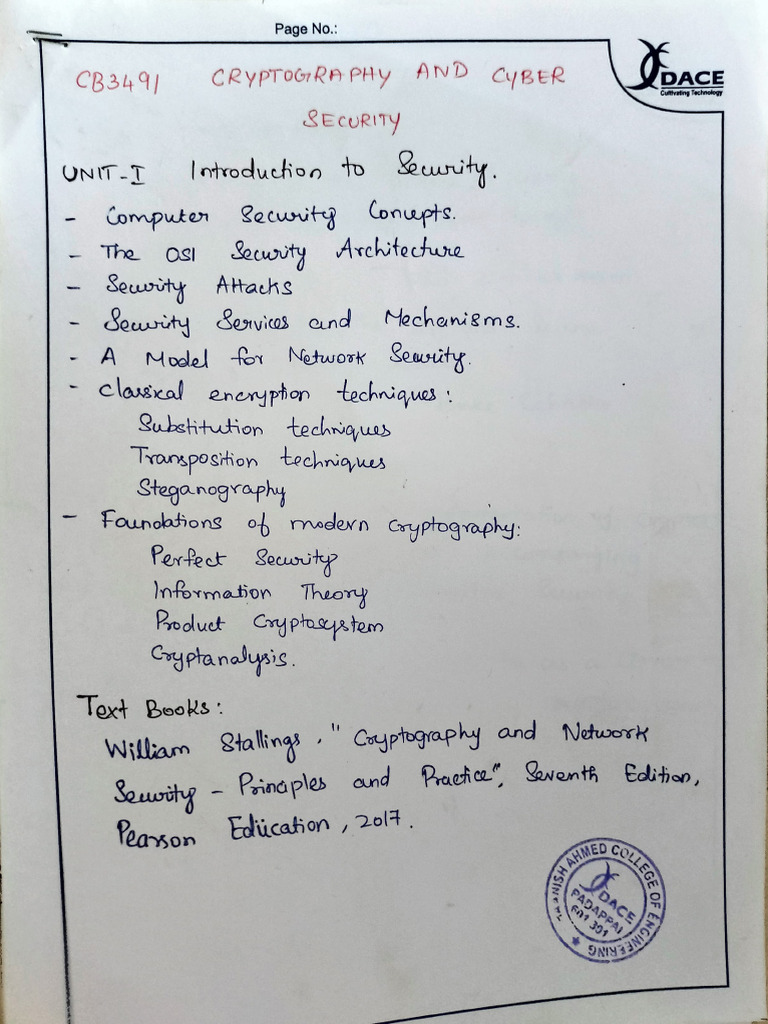 Page No.:
DACE
Cultivating Technology
CB3491 CRYPTOGRAPHY AND CYBER
SECURITY
UNIT-I Introduction to Security.
- Computer Security Concepts.
- The OSI Security Architecture
- Security Attacks
- Security Services and Mechanisms.
- A Model for Network Security.
- Classical encryption techniques:
Substitution techniques
Transposition techniques
Steganography
- Foundations of modern cryptography:
Perfect Security
Information Theory
Product Cryptosystem
Cryptanalysis.
Text Books:
William Stallings, "Cryptography and Network
Security - Principles and Practice", Seventh Edition,
Pearson Education, 2017.
AHMED COLLEGE OF ENGINEERING
DACE
PADAPPAI
601 301